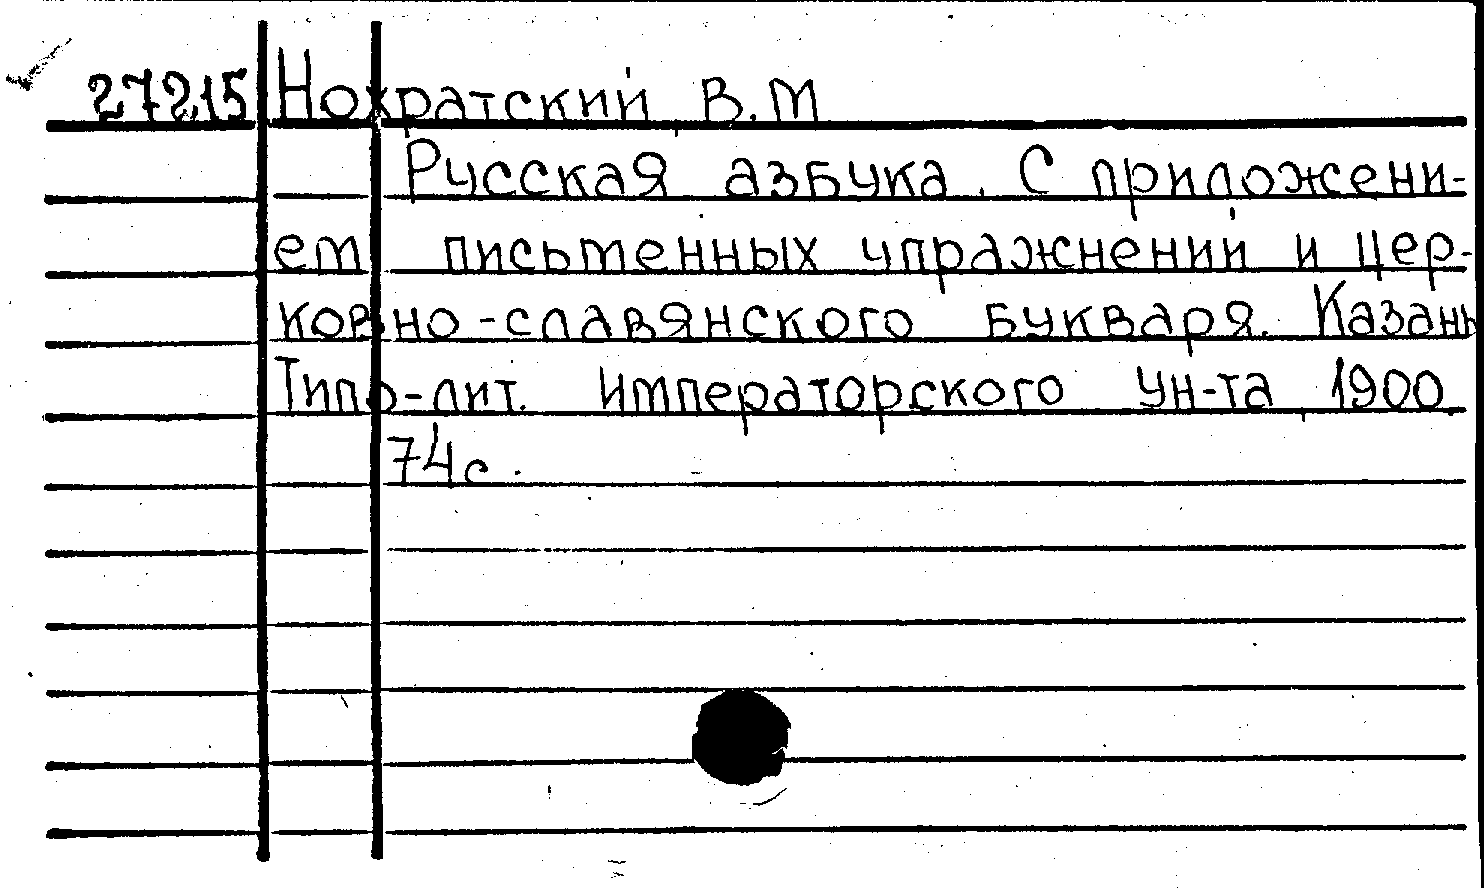 27215 Нохратский, В.М
Русская азбука. С приложени-
ем письменных упражнений и цер-
ковно-славянского букваря. Казань
Типо-лит. Императорского ун-та, 1900
74с.